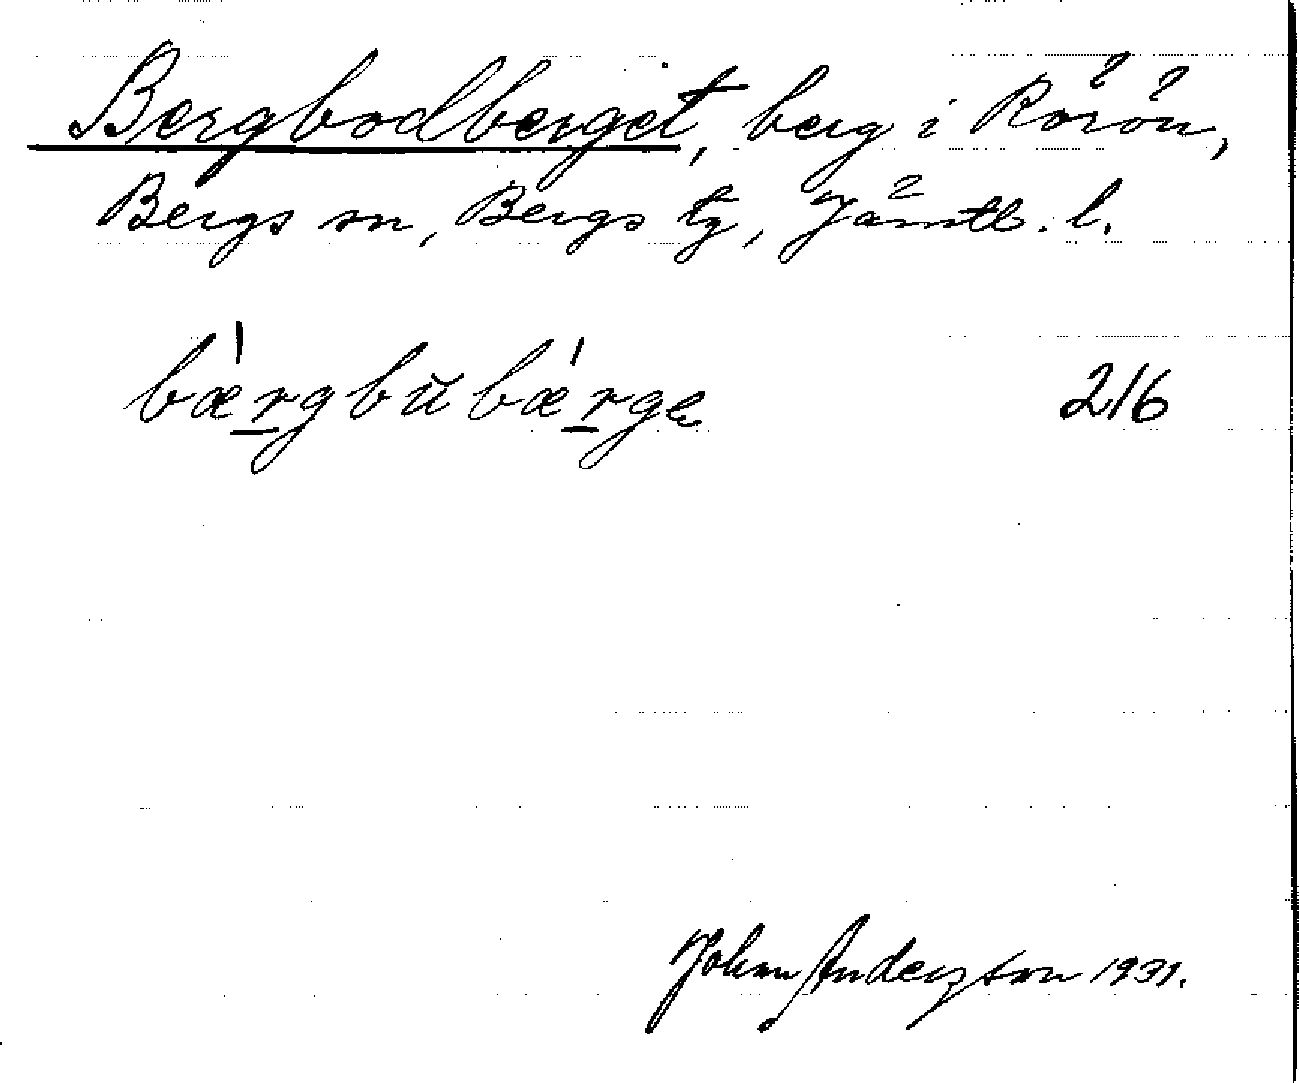 Bergbodberget, berg i Rörön,
Bergs sn, Bergs tg, Jämtl. l.
bærgbŭbærge 2/6
Johan Anderzson 1931.